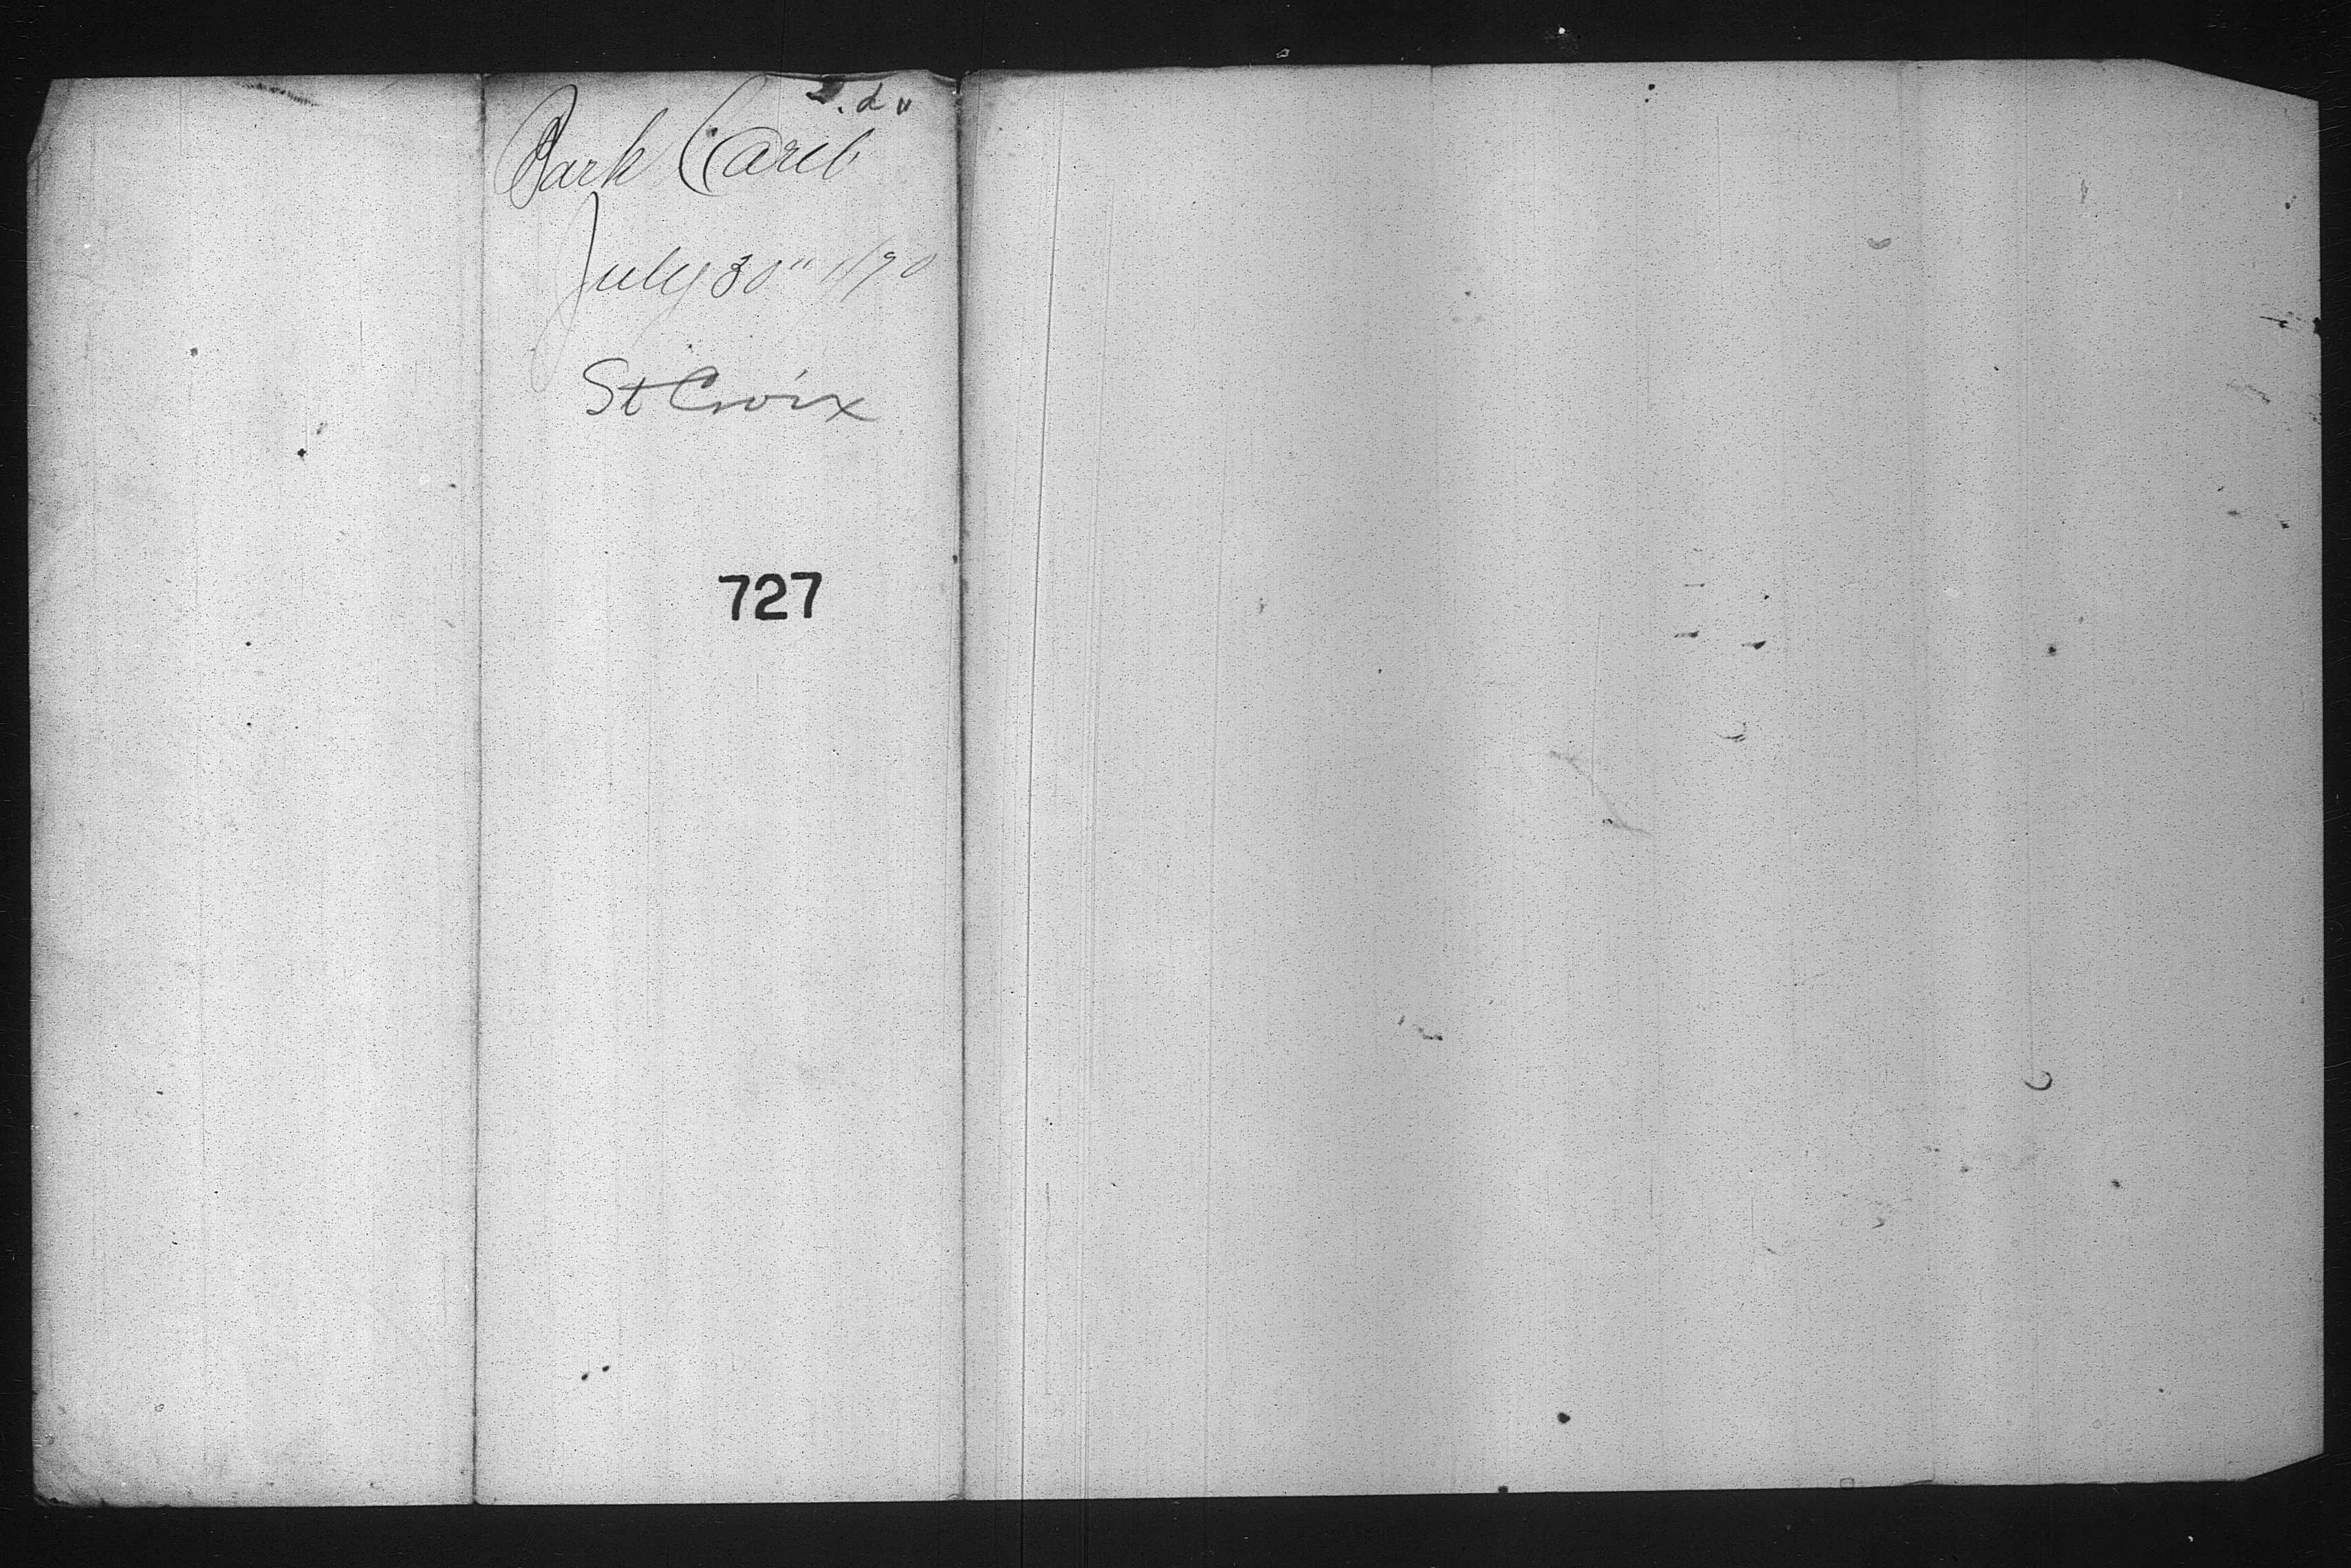 Bark Carib
July 30" 1890
St Croix
727